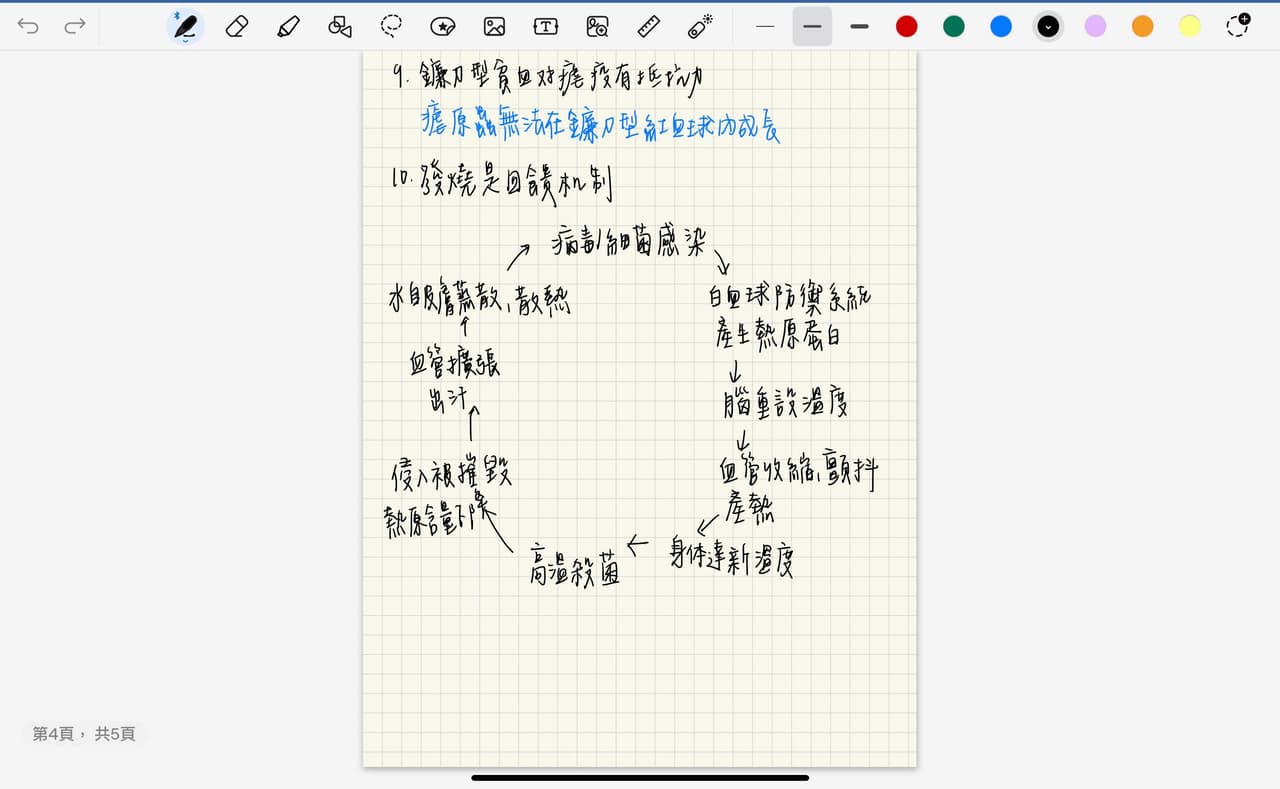 9. 鐮刀型貧血对瘧疫有抵抗力
瘧原蟲無法在鐮刀型紅血球內成長
10. 發燒是回饋机制
病毒/細菌感染
白血球防禦系統
產生熱原蛋白
腦重設溫度
血管收縮、顫抖
產熱
身体達新溫度
高溫殺菌
侵入被摧毀
熱原含量下降
血管擴張
出汁
水自皮膚蒸散、散熱
第4頁，共5頁